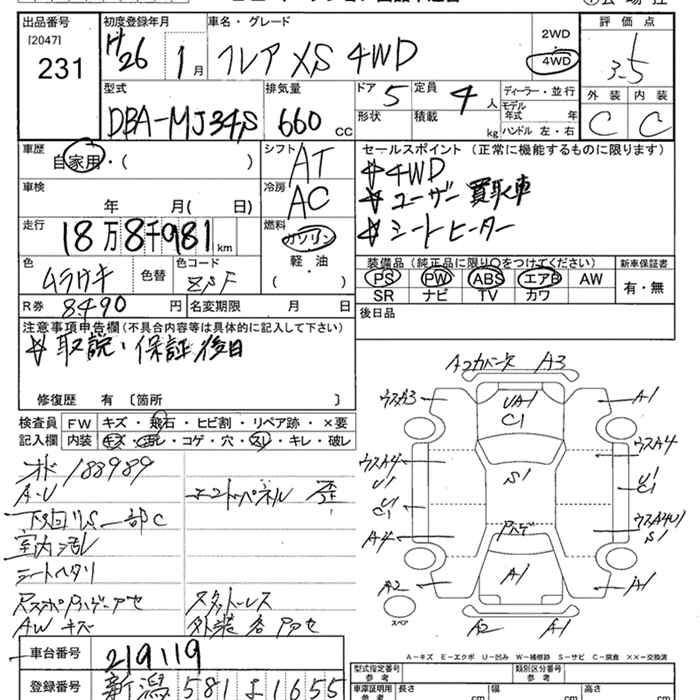 出品番号
[2047]
231
初度登録年月
H26 1月
車名・グレード
フレア XS 4WD
2WD
4WD
評価点
3.5
外装 内装
C C
型式
DBA-MJ34S
排気量
660 CC
ドア 5
形状
定員 4 人
積載 kg
ディーラー・並行
モデル年式 年
ハンドル 左・右
車歴
自家用・( )
シフト
AT
セールスポイント (正常に機能するものに限ります)
4WD
ユーザー買取車
シートヒーター
車検
年 月( 日)
冷房
AC
走行
18万8千981km
燃料
ガソリン
軽・油
( ・ )
色
ムラサキ
色替
色コード
ZPF
装備品 (純正品に限り○をつけてください)
新車保証書
PS PW ABS エアB AW
SR ナビ TV カワ
有・無
R券 8490 円
名変期限 月 日
後日品
注意事項申告欄(不具合内容等は具体的に記入して下さい)
取説・保証後日
修復歴 有 〔箇所 〕
検査員記入欄
FW キズ・飛石・ヒビ割・リペア跡・×要
内装 キズ・ヨゴレ・コゲ・穴・スレ・キレ・破レ
188989
A・U
下回りS一部C
室内汚レ
シートヘタリ
AWキズ
エンドパネル 歪
スタットレス
外装各アセ
A2カバー欠 A3
ウスA3
A1
UA1
C1
ウスA4
U1
ウスA4
S1
U1
C1
C1
ウスA4U1
S1
A4
A1
A2
A1
スペア
A2
A1
A-キズ E-エクボ U-凹み W-補修跡 S-サビ C-腐食 ××-交換済
車台番号
219119
登録番号
新潟 581 よ 1655
型式指定番号
参考
類別区分番号
参考
車庫証明用
参考
長さ
幅
高さ